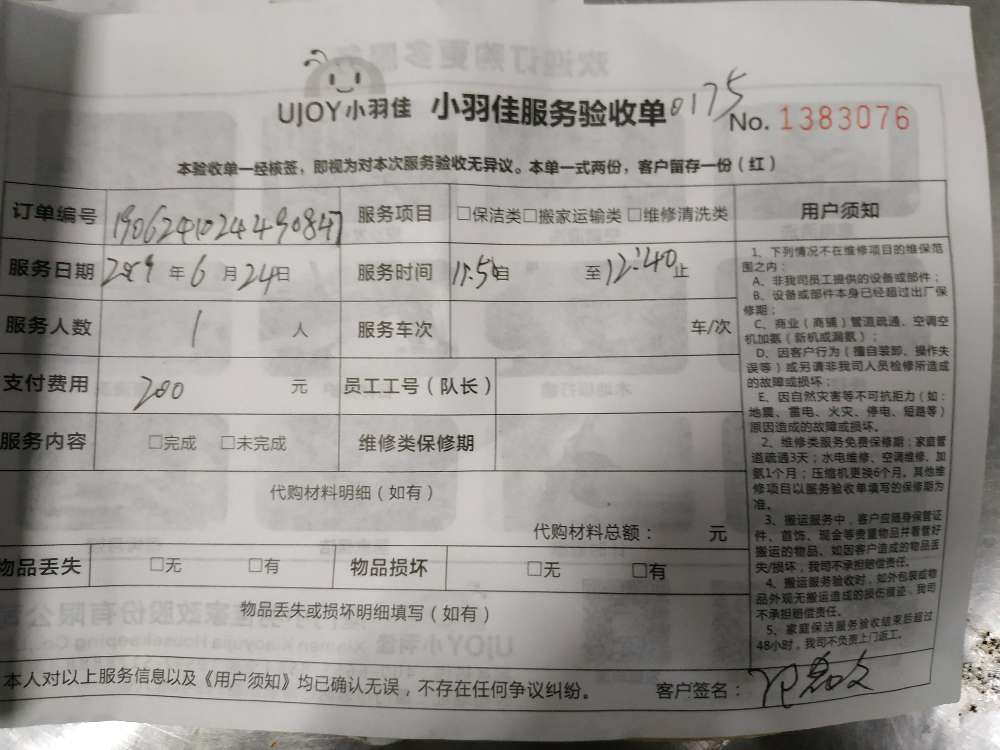 UJOY小羽佳 小羽佳服务验收单 0175
No. 1383076
本验收单一经核签，即视为对本次服务验收无异议。本单一式两份，客户留存一份（红）
订单编号 1906241024490847 服务项目 □保洁类□搬家运输类□维修清洗类
服务日期 2019 年 6 月 24日 服务时间 11:50自 至12:40止
服务人数 1 人 服务车次 车/次
支付费用 200 元 员工工号（队长）
服务内容 □完成 □未完成 维修类保修期
代购材料明细（如有）
代购材料总额： 元
物品丢失 □无 □有 物品损坏 □无 □有
物品丢失或损坏明细填写（如有）
本人对以上服务信息以及《用户须知》均已确认无误，不存在任何争议纠纷。 客户签名：
用户须知
1、下列情况不在维修项目的维保范
围之内：
A、非我司员工提供的设备或部件；
B、设备或部件本身已经超过出厂保
修期；
C、商业（商铺）管道疏通、空调空
机加氨（新机或漏氨）；
D、因客户行为（擅自装卸、操作失
误等）或另请非我司人员检修所造成
的故障或损坏；
E、因自然灾害等不可抗拒力（如：
地震、雷电、火灾、停电、短路等）
原因造成的故障或损坏。
2、维修类服务免费保修期：家庭管
道疏通3天；水电维修、空调维修、加
氨1个月；压缩机更换6个月。其他维
修项目以服务验收单填写的保修期为
准。
3、搬运服务中，客户应随身保管证
件、首饰、现金等贵重物品并看管好
搬运的物品。如因客户造成的物品丢
失/损坏，我司不承担赔偿责任。
4、搬运服务验收时，如外包装或物
品外观无搬运造成的损伤痕迹，我司
不承担赔偿责任。
5、家庭保洁服务验收结束后超过
48小时，我司不负责上门返工。